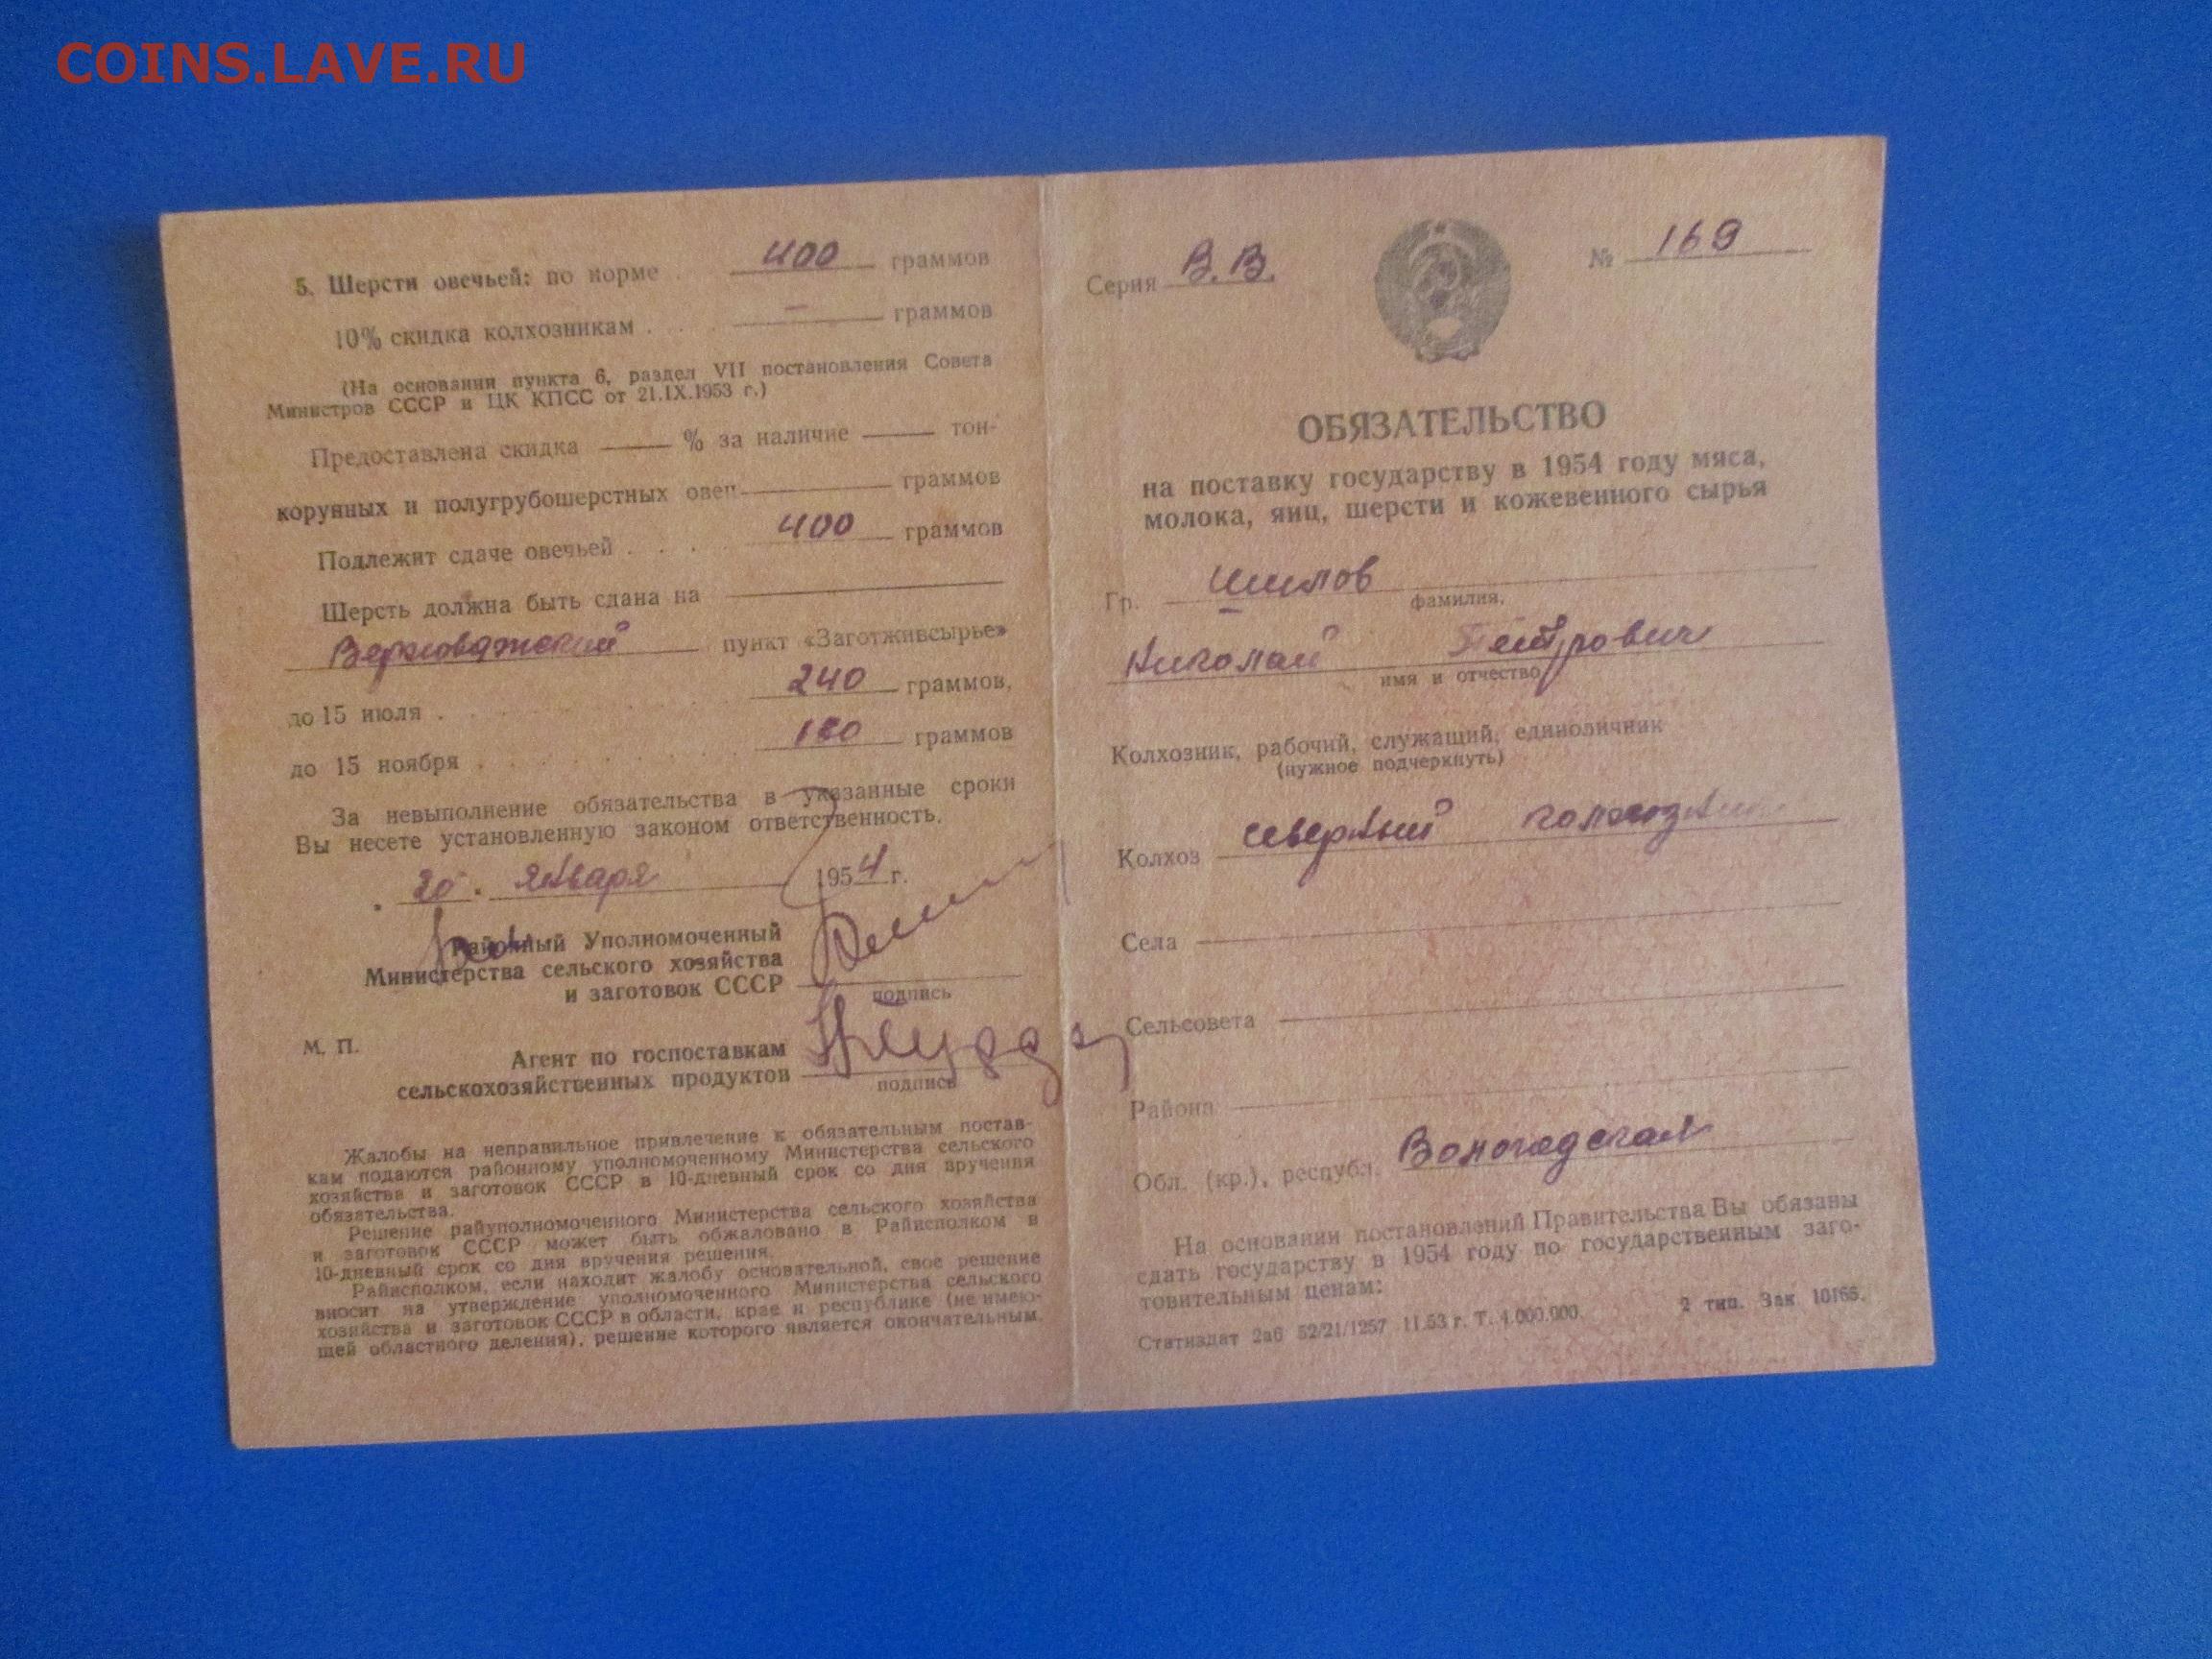 COINS.LAVE.RU
5. Шерсти овечьей: по норме . 400 граммов
10% скидка колхозникам . . . — граммов
(На основании пункта 6, раздел VII постановления Совета
Министров СССР и ЦК КПСС от 21.IX.1953 г.)
Предоставлена скидка —— % за наличие —— тон-
корунных и полугрубошерстных овец ——— граммов
Подлежит сдаче овечьей . . . . 400 граммов
Шерсть должна быть сдана на
Верховажский пункт «Заготживсырье»
до 15 июля . 240 граммов,
до 15 ноября . 160 граммов
За невыполнение обязательства в указанные сроки
Вы несете установленную законом ответственность.
20 . января 1954 г.
Районный Уполномоченный
Министерства сельского хозяйства
и заготовок СССР
подпись
М. П.
Агент по госпоставкам
сельскохозяйственных продуктов
подпись
Жалобы на неправильное привлечение к обязательным постав-
кам подаются районному уполномоченному Министерства сельского
хозяйства и заготовок СССР в 10-дневный срок со дня вручения
обязательства.
Решение райуполномоченного Министерства сельского хозяйства
и заготовок СССР может быть обжаловано в Райисполком в
10-дневный срок со дня вручения решения.
Райисполком, если находит жалобу основательной, свое решение
вносит на утверждение уполномоченного Министерства сельского
хозяйства и заготовок СССР в области, крае и республике (не имею-
щей областного деления), решение которого является окончательным.
Серия В.В. № 169
ОБЯЗАТЕЛЬСТВО
на поставку государству в 1954 году мяса,
молока, яиц, шерсти и кожевенного сырья
Гр. Шилов
фамилия,
Николай Петрович
имя и отчество
Колхозник, рабочий, служащий, единоличник
(нужное подчеркнуть)
Колхоз северный
Села
Сельсовета
Района
Обл. (кр.), республ. Вологодская
На основании постановлений Правительства Вы обязаны
сдать государству в 1954 году по государственным заго-
товительным ценам:
Статиздат 2аб 52/21/1257 11.53 г. Т. 4.000.000. 2 тип. Зак 10166.